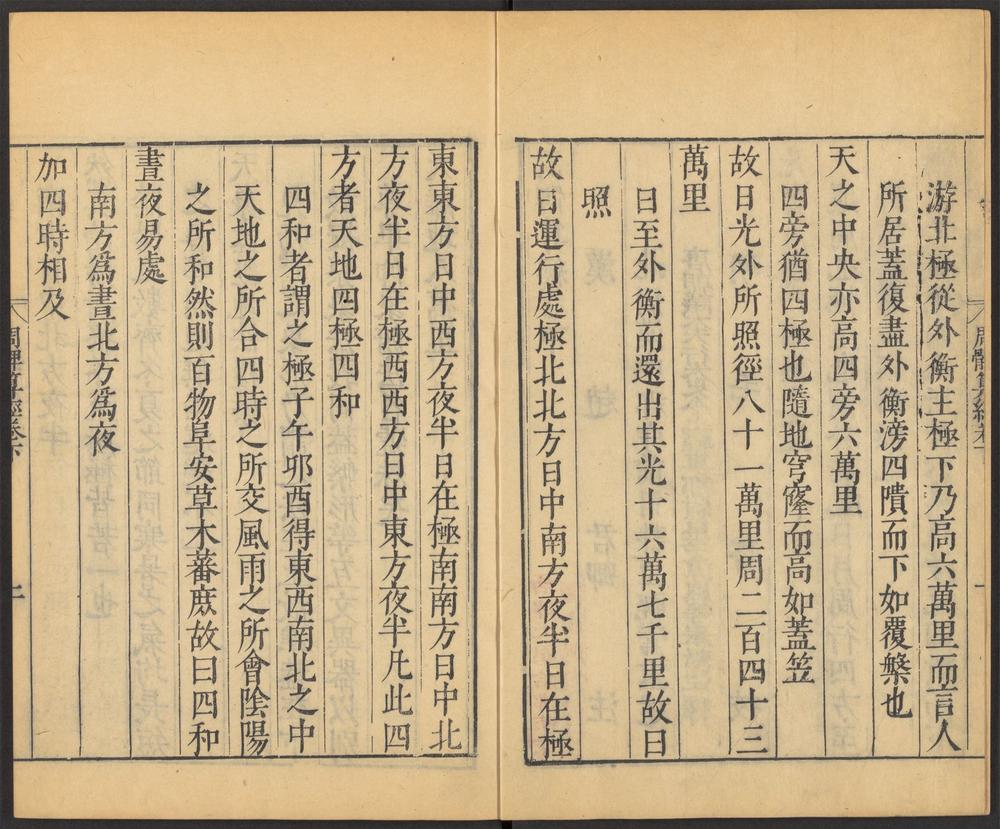 游北極從外衡主極下乃高六萬里而言人
所居蓋復盡外衡滂四隤而下如覆槃也
天之中央亦高四旁六萬里
四旁猶四極也隨地穹窿而高如蓋笠
故日光外所照徑八十一萬里周二百四十三
萬里
日至外衡而還出其光十六萬七千里故日
照
故日運行處極北北方日中南方夜半日在極
東東方日中西方夜半日在極南南方日中北
方夜半日在極西西方日中東方夜半凡此四
方者天地四極四和
四和者謂之極子午卯酉得東西南北之中
天地之所合四時之所交風雨之所會陰陽
之所和然則百物阜安草木蕃庶故曰四和
晝夜易處
南方為晝北方為夜
加四時相及
周髀算經卷下